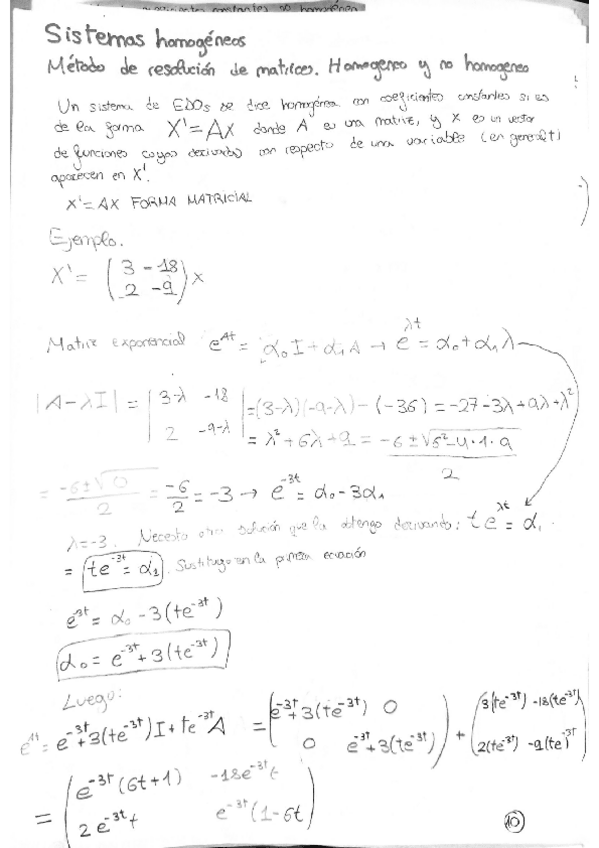 constantes no homogéneo
Sistemas homogéneos
Método de resolución de matrices. Homogeneo y no homogeneo
Un sistema de EDOs se dice homogéneo con coeficientes constantes si es
de la forma X'=AX donde A es una matriz, y X es un vector
de funciones cuyas derivadas con respecto de una variable (en general t)
aparecen en X'.
X'=AX FORMA MATRICIAL
Ejemplo.
X' = (3 -18
2 -9) X
Matriz exponencial e^At = α₀I + α₁A → e^λt = α₀ + α₁λ
|A-λI| = |3-λ -18
2 -9-λ| = (3-λ)(-9-λ) - (-36) = -27 - 3λ + 9λ + λ²
= λ² + 6λ + 9 = (-6 ± √(6² - 4·1·9)) / 2
= (-6 ± √0) / 2 = -6/2 = -3 → e^-3t = α₀ - 3α₁
λ=-3. Necesito otra solución que la obtengo derivando: t e^λt = α₁
= te^-3t = α₁. Sustituyo en la primera ecuación
e^-3t = α₀ - 3(te^-3t)
α₀ = e^-3t + 3(te^-3t)
Luego:
e^At = e^-3t + 3(te^-3t)I + te^-3t A = (e^-3t + 3(te^-3t) 0
0 e^-3t + 3(te^-3t)) + (3(te^-3t) -18(te^-3t)
2(te^-3t) -9(te^-3t))
= (e^-3t(6t+1) -18e^-3t t
2e^-3t t e^-3t(1-6t))
10